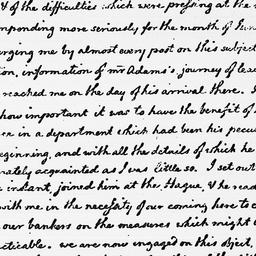 & of the difficulties which were pressing at the
mponding more seriously for the month of
urging me by almost every post on this subject
ion, information of mr Adams's journey of
reached me on the day of his arrival there. I
how important it was to have the benefit of
ce in a department which had been his pecu
eginning, and with all the details of which he
mately acquainted as I was little so. I set out
instant, joined him at the Hague, & he read
with me in the necessity of our coming here to c
our bankers on the measures which might
cticable. we are now engaged on this object,